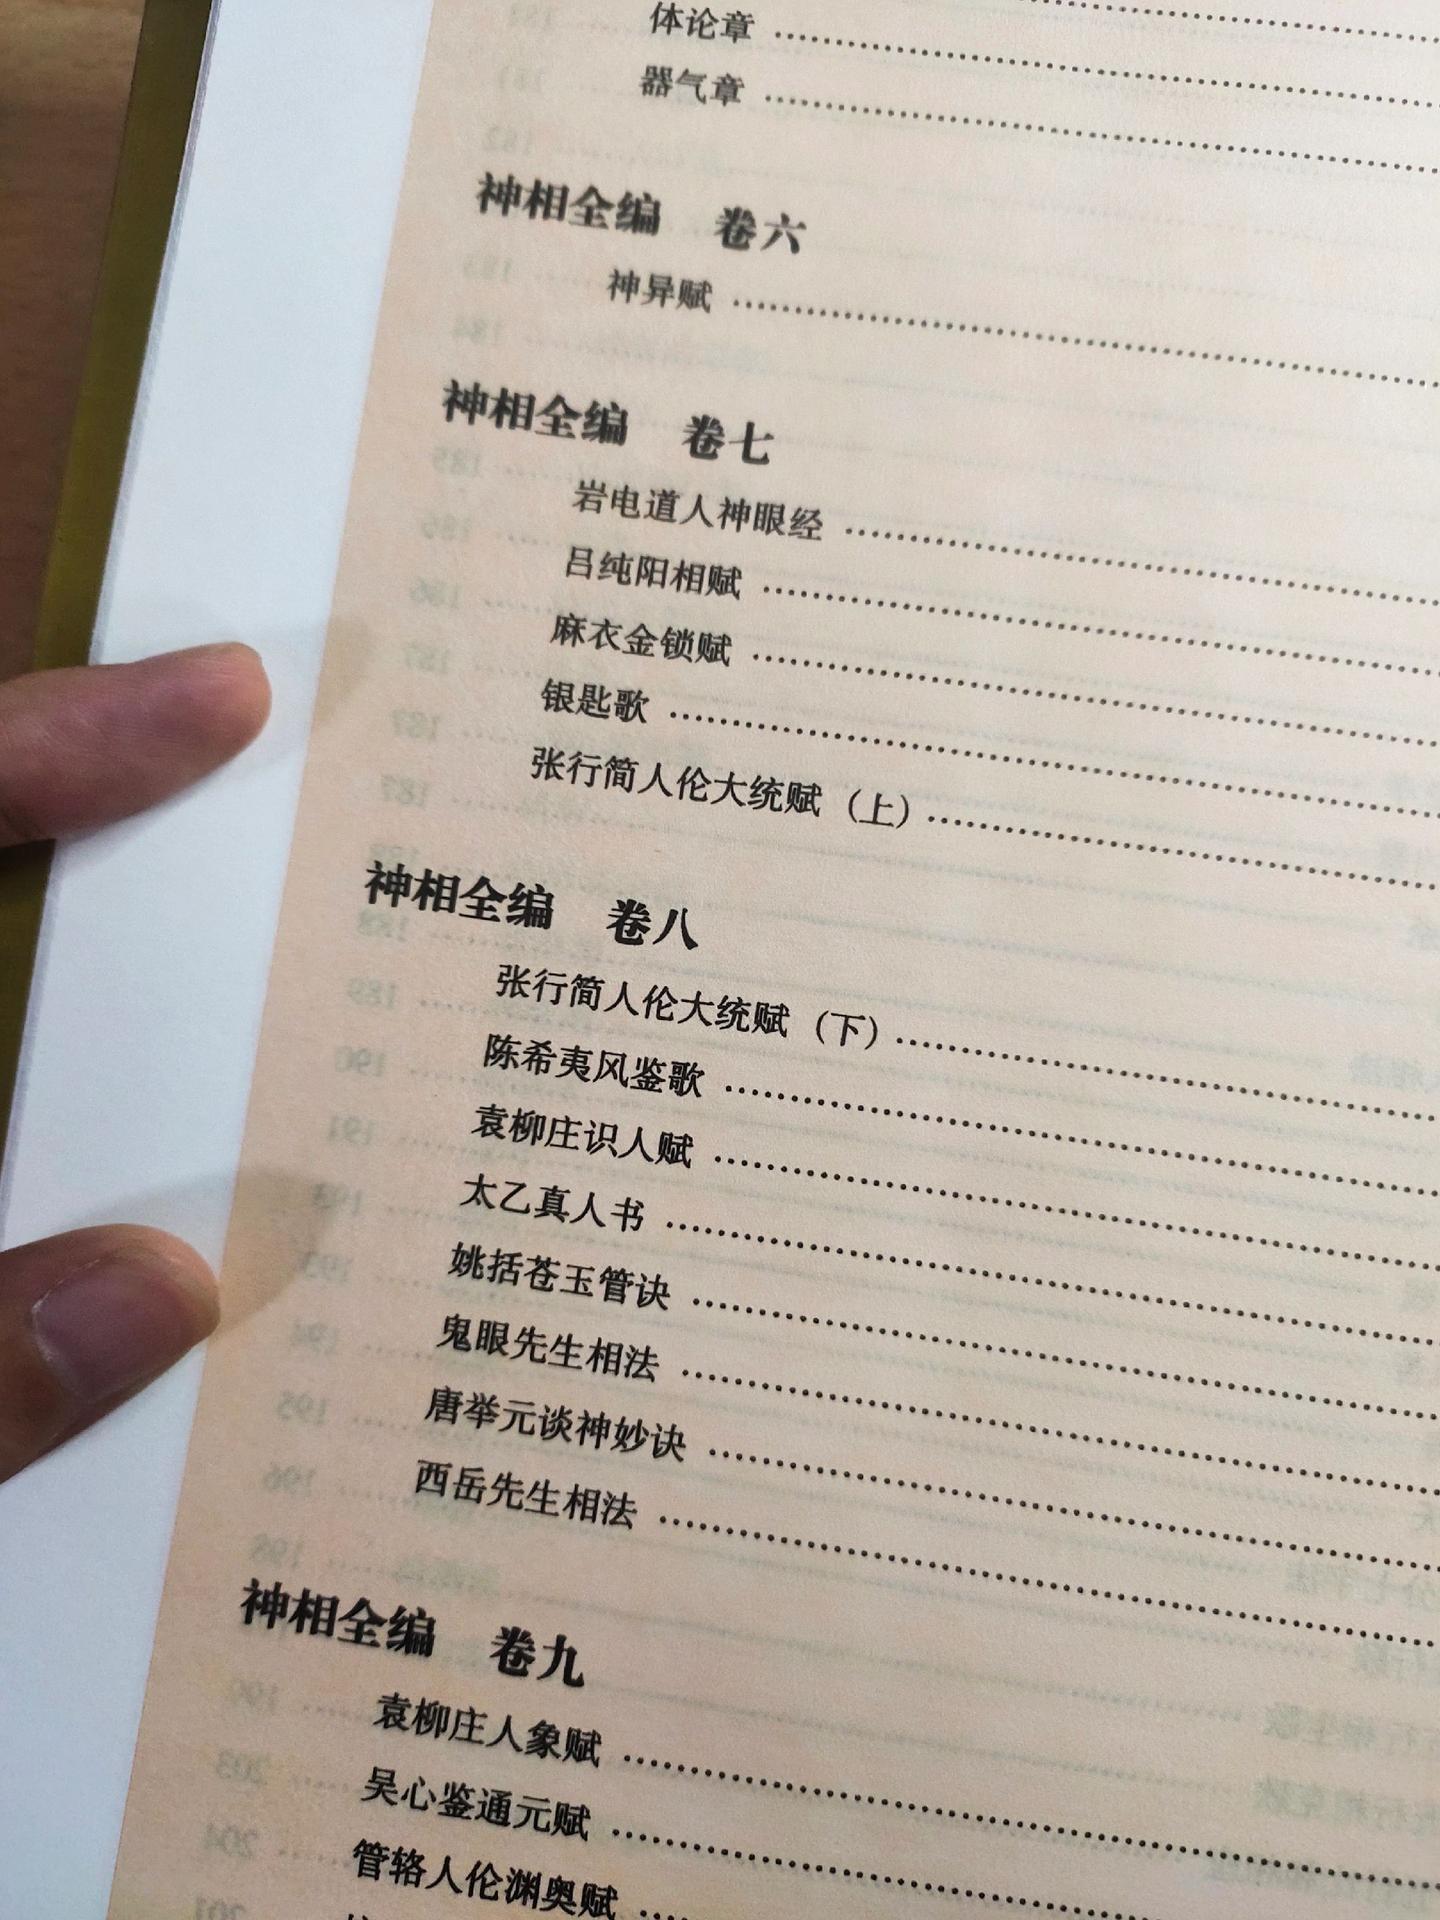 体论章
器气章
神相全编 卷六
神异赋
神相全编 卷七
岩电道人神眼经
吕纯阳相赋
麻衣金锁赋
银匙歌
张行简人伦大统赋（上）
神相全编 卷八
张行简人伦大统赋（下）
陈希夷风鉴歌
袁柳庄识人赋
太乙真人书
姚括苍玉管诀
鬼眼先生相法
唐举元谈神妙诀
西岳先生相法
神相全编 卷九
袁柳庄人象赋
吴心鉴通元赋
管辂人伦渊奥赋